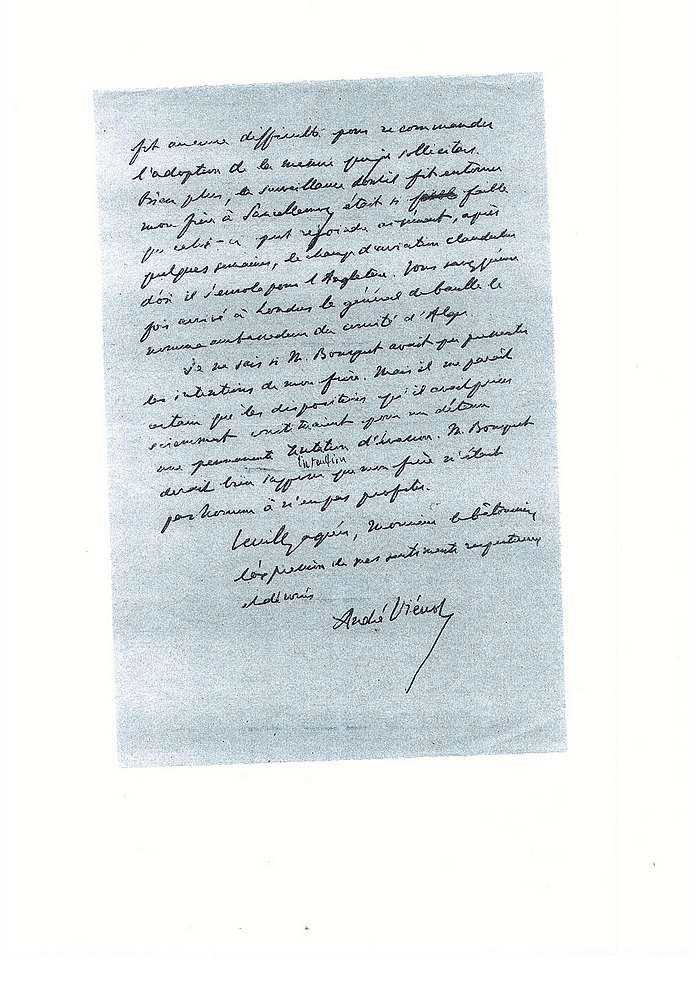 fit aucune difficulté pour recommander
l'adoption de la mesure que je sollicitais.
Bien plus, la surveillance dont il fit entourer
mon frère à était si faible
que celui-ci put rejoindre aisément, après
quelques semaines, le champ d'aviation clandestin
d'où il s'envola pour l'Angleterre. Vous savez qu'une
fois arrivé à Londres le général de Gaulle le
nomma ambassadeur du comité d'Alger.
Je ne sais si M. Bousquet avait pu pressentir
les intentions de mon frère. Mais il me paraît
certain que les dispositions qu'il avait prises
sciemment constituaient pour un détenu
une permanente tentation d'évasion. M. Bousquet
devait bien supposer que mon frère n'était
pas homme à n'en pas profiter.
Veuillez agréer, Monsieur le bâtonnier,
l'expression de mes sentiments respectueux
et dévoués
André Viénot